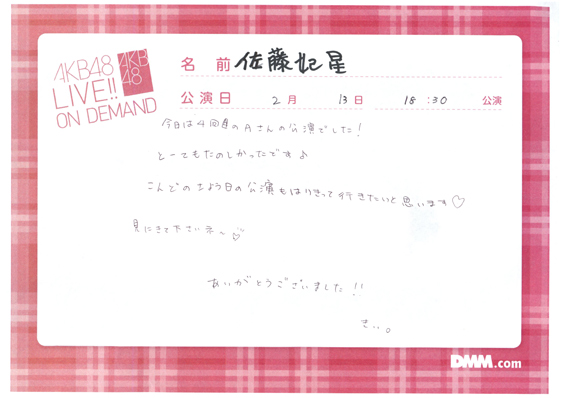 AKB48
LIVE!!
ON DEMAND
AKB
48
名前 佐藤妃星
公演日 2月 13日 18:30 公演
今日は4回目のAさんの公演でした!
とーてもたのしかったです♪
こんどの土よう日の公演もはりきって行きたいと思います♡
見にきて下さいネ~♡
ありがとうございました!!
きぃ。
DMM.com